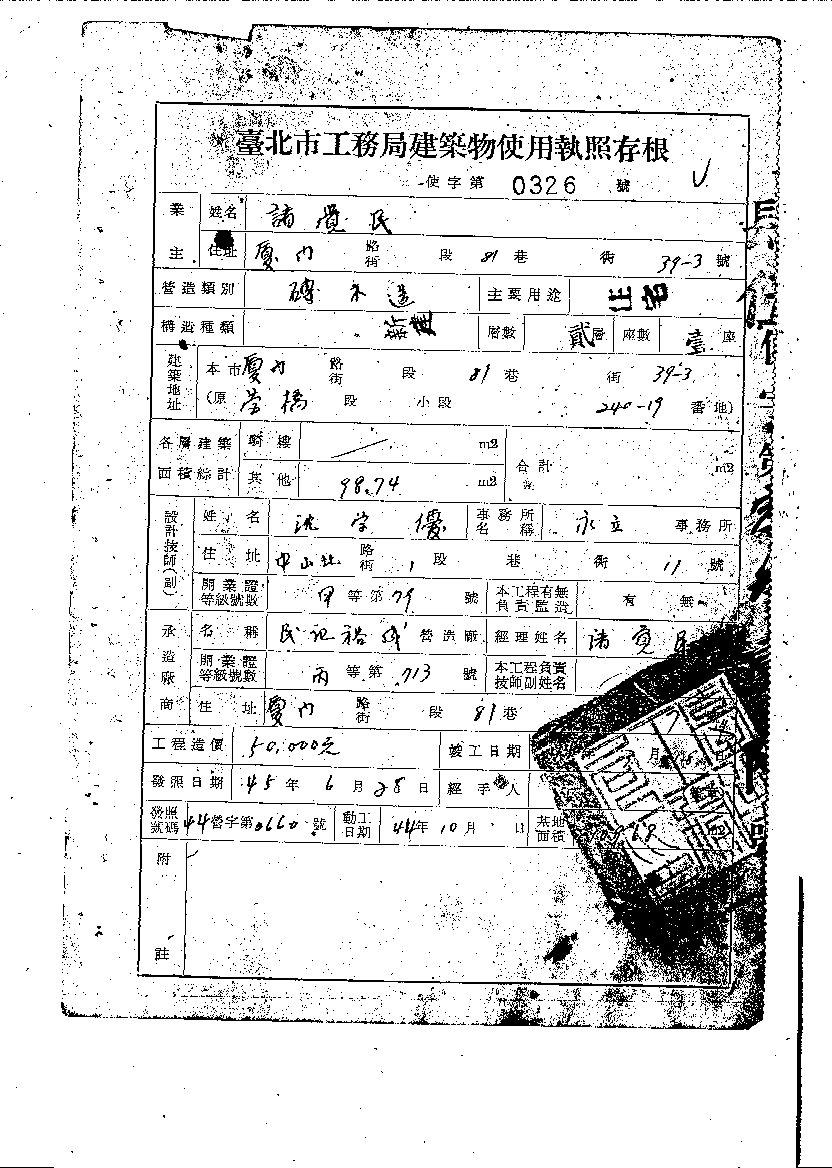 臺北市工務局建築物使用執照存根
使字第 0326 號
業主 姓名 諸覺民
住址 廈門 路街 段 81巷 街 39-3號
營造類別 磚木造 主要用途 住宅
構造種類 新建 層數 貳層 座數 壹座
建築地址 本市廈門 路街 段 81巷 街 39-3
(原 螢橋 段 小段 240-19 番地)
各層建築面積綜計 騎樓 m2 合計 m2
其他 98.74 m2
設計技師(副) 姓名 沈学優 事務所名稱 永立 事務所
住址 中山北 路街 1段 巷 街 11號
開業證等級號數 甲等第79號 本工程有無負責監造 有 無
承造廠商 名稱 民記 營造廠 經理姓名
開業證等級號數 丙等第713號 本工程負責技師副姓名
住址 廈門 路街 段 81巷
工程造價 50,000元 竣工日期 月 日
發照日期 45年6月28日 經手人
發照號碼 44營字第0660號 動工日期 44年10月 日 基地面積
附註